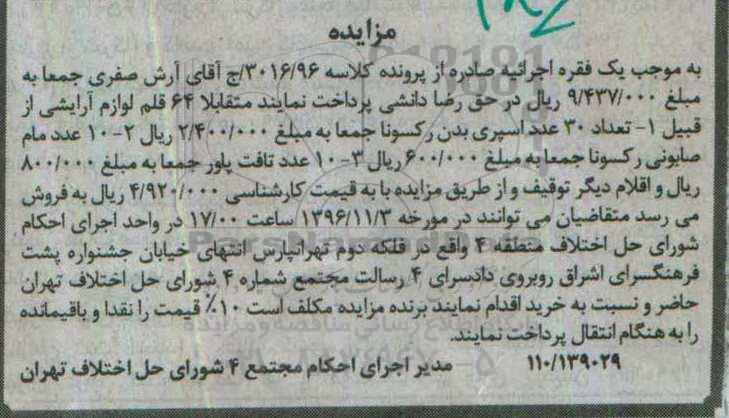 مزایده
به موجب یک فقره اجرائیه صادره از پرونده کلاسه ۳۰۱۶/۹۶/ج آقای آرش صفری جمعا به
مبلغ ۹/۴۳۷/۰۰۰ ریال در حق رضا دانشی پرداخت نمایند متقابلا ۶۴ قلم لوازم آرایشی از
قبیل ۱- تعداد ۳۰ عدد اسپری بدن رکسونا جمعا به مبلغ ۲/۴۰۰/۰۰۰ ریال ۲- ۱۰ عدد مام
صابونی رکسونا جمعا به مبلغ ۶۰۰/۰۰۰ ریال ۳- ۱۰ عدد تافت پاور جمعا به مبلغ ۸۰۰/۰۰۰
ریال و اقلام دیگر توقیف و از طریق مزایده با به قیمت کارشناسی ۴/۹۲۰/۰۰۰ ریال به فروش
می رسد متقاضیان می توانند در مورخه ۱۳۹۶/۱۱/۳ ساعت ۱۷/۰۰ در واحد اجرای احکام
شورای حل اختلاف منطقه ۴ واقع در فلکه دوم تهرانپارس انتهای خیابان جشنواره پشت
فرهنگسرای اشراق روبروی دادسرای ۴ رسالت مجتمع شماره ۴ شورای حل اختلاف تهران
حاضر و نسبت به خرید اقدام نمایند برنده مزایده مکلف است ۱۰٪ قیمت را نقدا و باقیمانده
را به هنگام انتقال پرداخت نمایند.
۱۱۰/۱۳۹۰۲۹ مدیر اجرای احکام مجتمع ۴ شورای حل اختلاف تهران